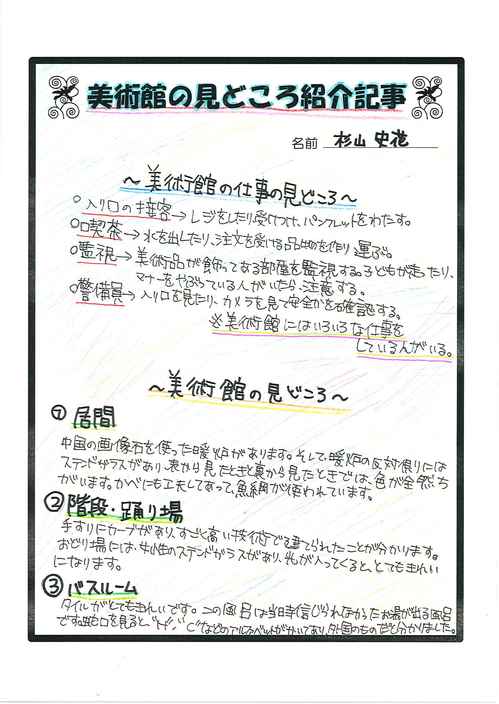 美術館の見どころ紹介記事
名前 杉山 史花
～美術館の仕事の見どころ～
○入り口の接客→レジをしたり受けつけ、パンフレットをわたす。
○喫茶→水を出したり、注文を受ける品物を作り運ぶ。
○監視→美術品が飾ってある部屋を監視する。子どもが走ったり、
マナーをやぶっている人がいたら、注意する。
○警備員→入り口を見たり、カメラを見て安全かを確認する。
※美術館にはいろいろな仕事を
している人がいる。
～美術館の見どころ～
① 居間
中国の画像石を使った暖炉があります。そして、暖炉の反対側りには
ステンドガラスがあり、表から見たときと裏から見たときでは、色が全然ち
がいます。かべにも工夫してあって、魚網が使われています。
②階段・踊り場
手すりにカーブがあり、すごく高い技術で建てられたことが分かります。
おどり場には、女性のステンドガラスがあり、光が入ってくると、とてもきれい
になります。
③ バスルーム
タイルがとてもきれいです。この風呂は当時信じられなかったお湯が出る風呂
です。蛇口を見ると、"H"、"C"などのアルファベットがかいてあり、外国のものだと分かりました。